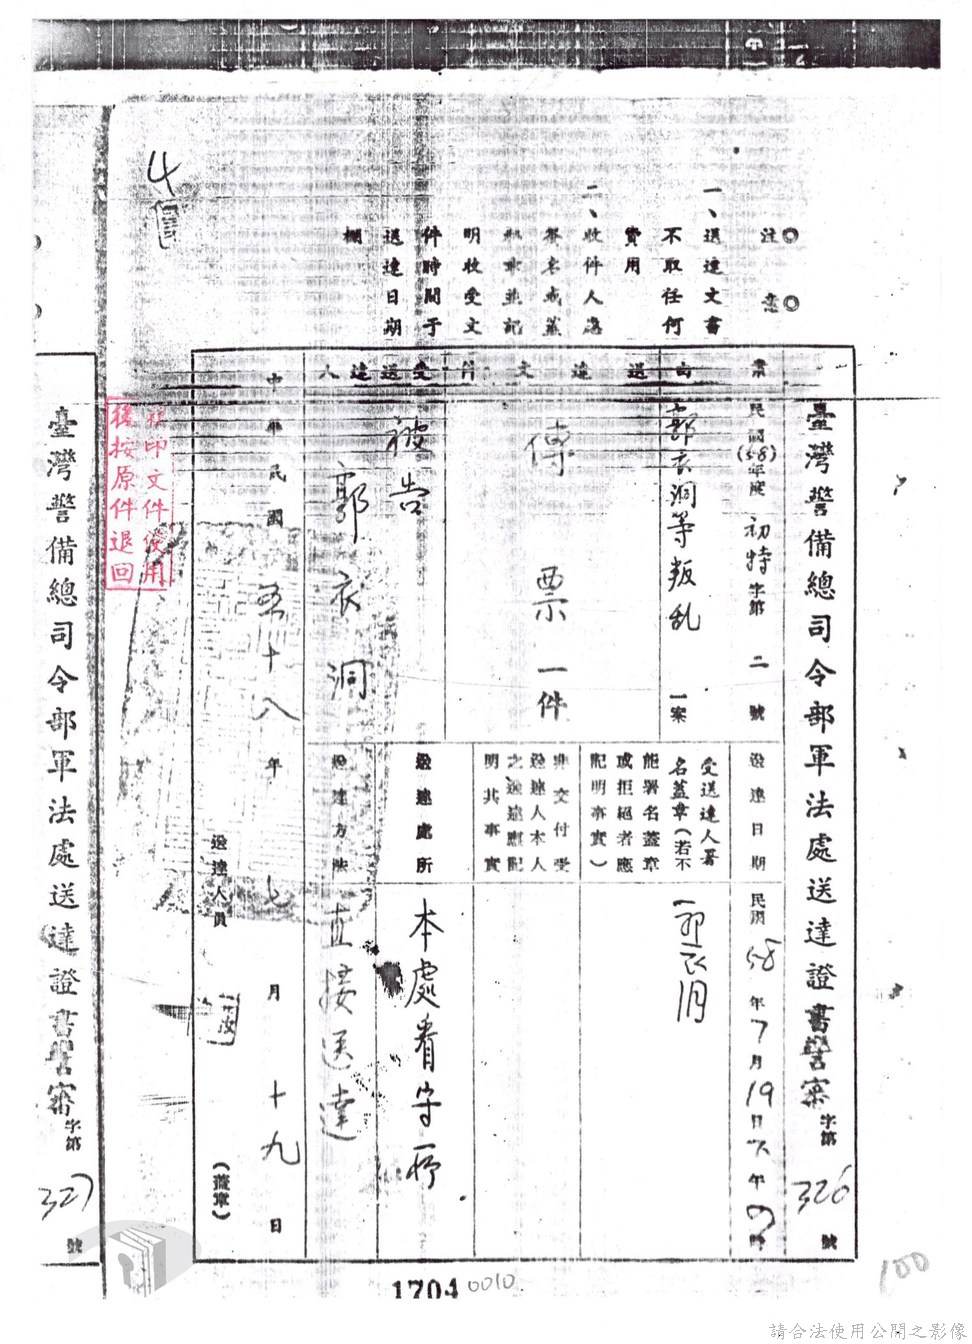 注意
一、送達文書
不取任何
費用
二、收件人應
簽名或蓋
章並記
明收受文
件時間于
送達日期
欄
臺灣警備總司令部軍法處送達證書警審字第326號
案由
民國(58)年度初特字第二號
郭衣洞等叛乱一案
送達文件
傳票一件
受送達人
被告
郭衣洞
送達日期
民國58年7月19日下午 時
受送達人署
名蓋章(若不
能署名蓋章
或拒絕者應
記明事實)
郭衣洞
非交付受
送達人本人
之送達應記
明其事實
送達處所
本處看守所
送達方法
直接送達
中華民國五十八年七月十九日
送達人員
(蓋章)
影印文件使用
後按原件退回
臺灣警備總司令部軍法處送達證書警審字第327號
1704
0010
100
請合法使用公開之影像